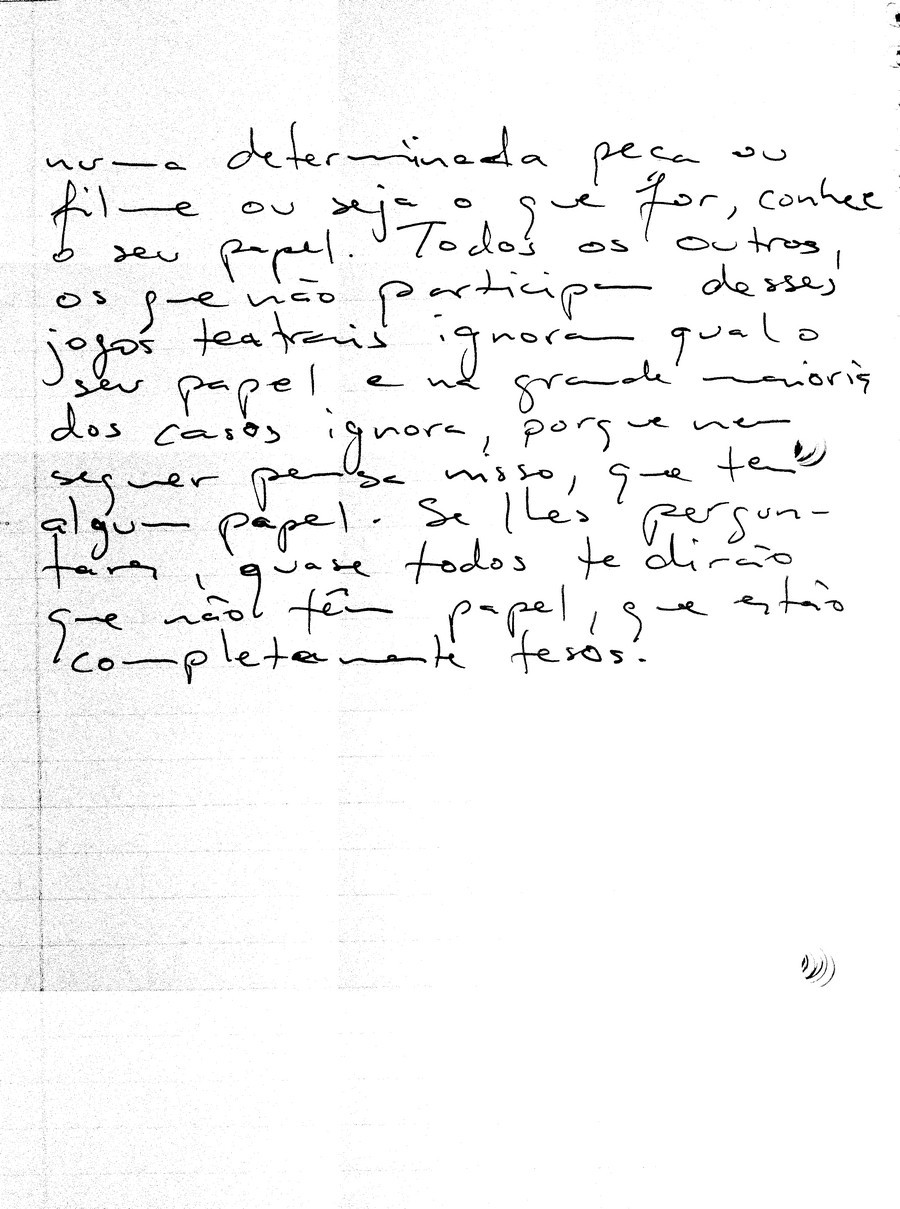 numa determinada peça ou
filme ou seja o que for, conhece
o seu papel. Todos os outros,
os que não participam desses
jogos teatrais ignoram qual o
seu papel e na grande maioria
dos casos ignora, porque nem
sequer pensa nisso, que tem
algum papel. Se lhes pergun-
tares, quase todos te dirão
que não têm papel, que estão
completamente tesos.